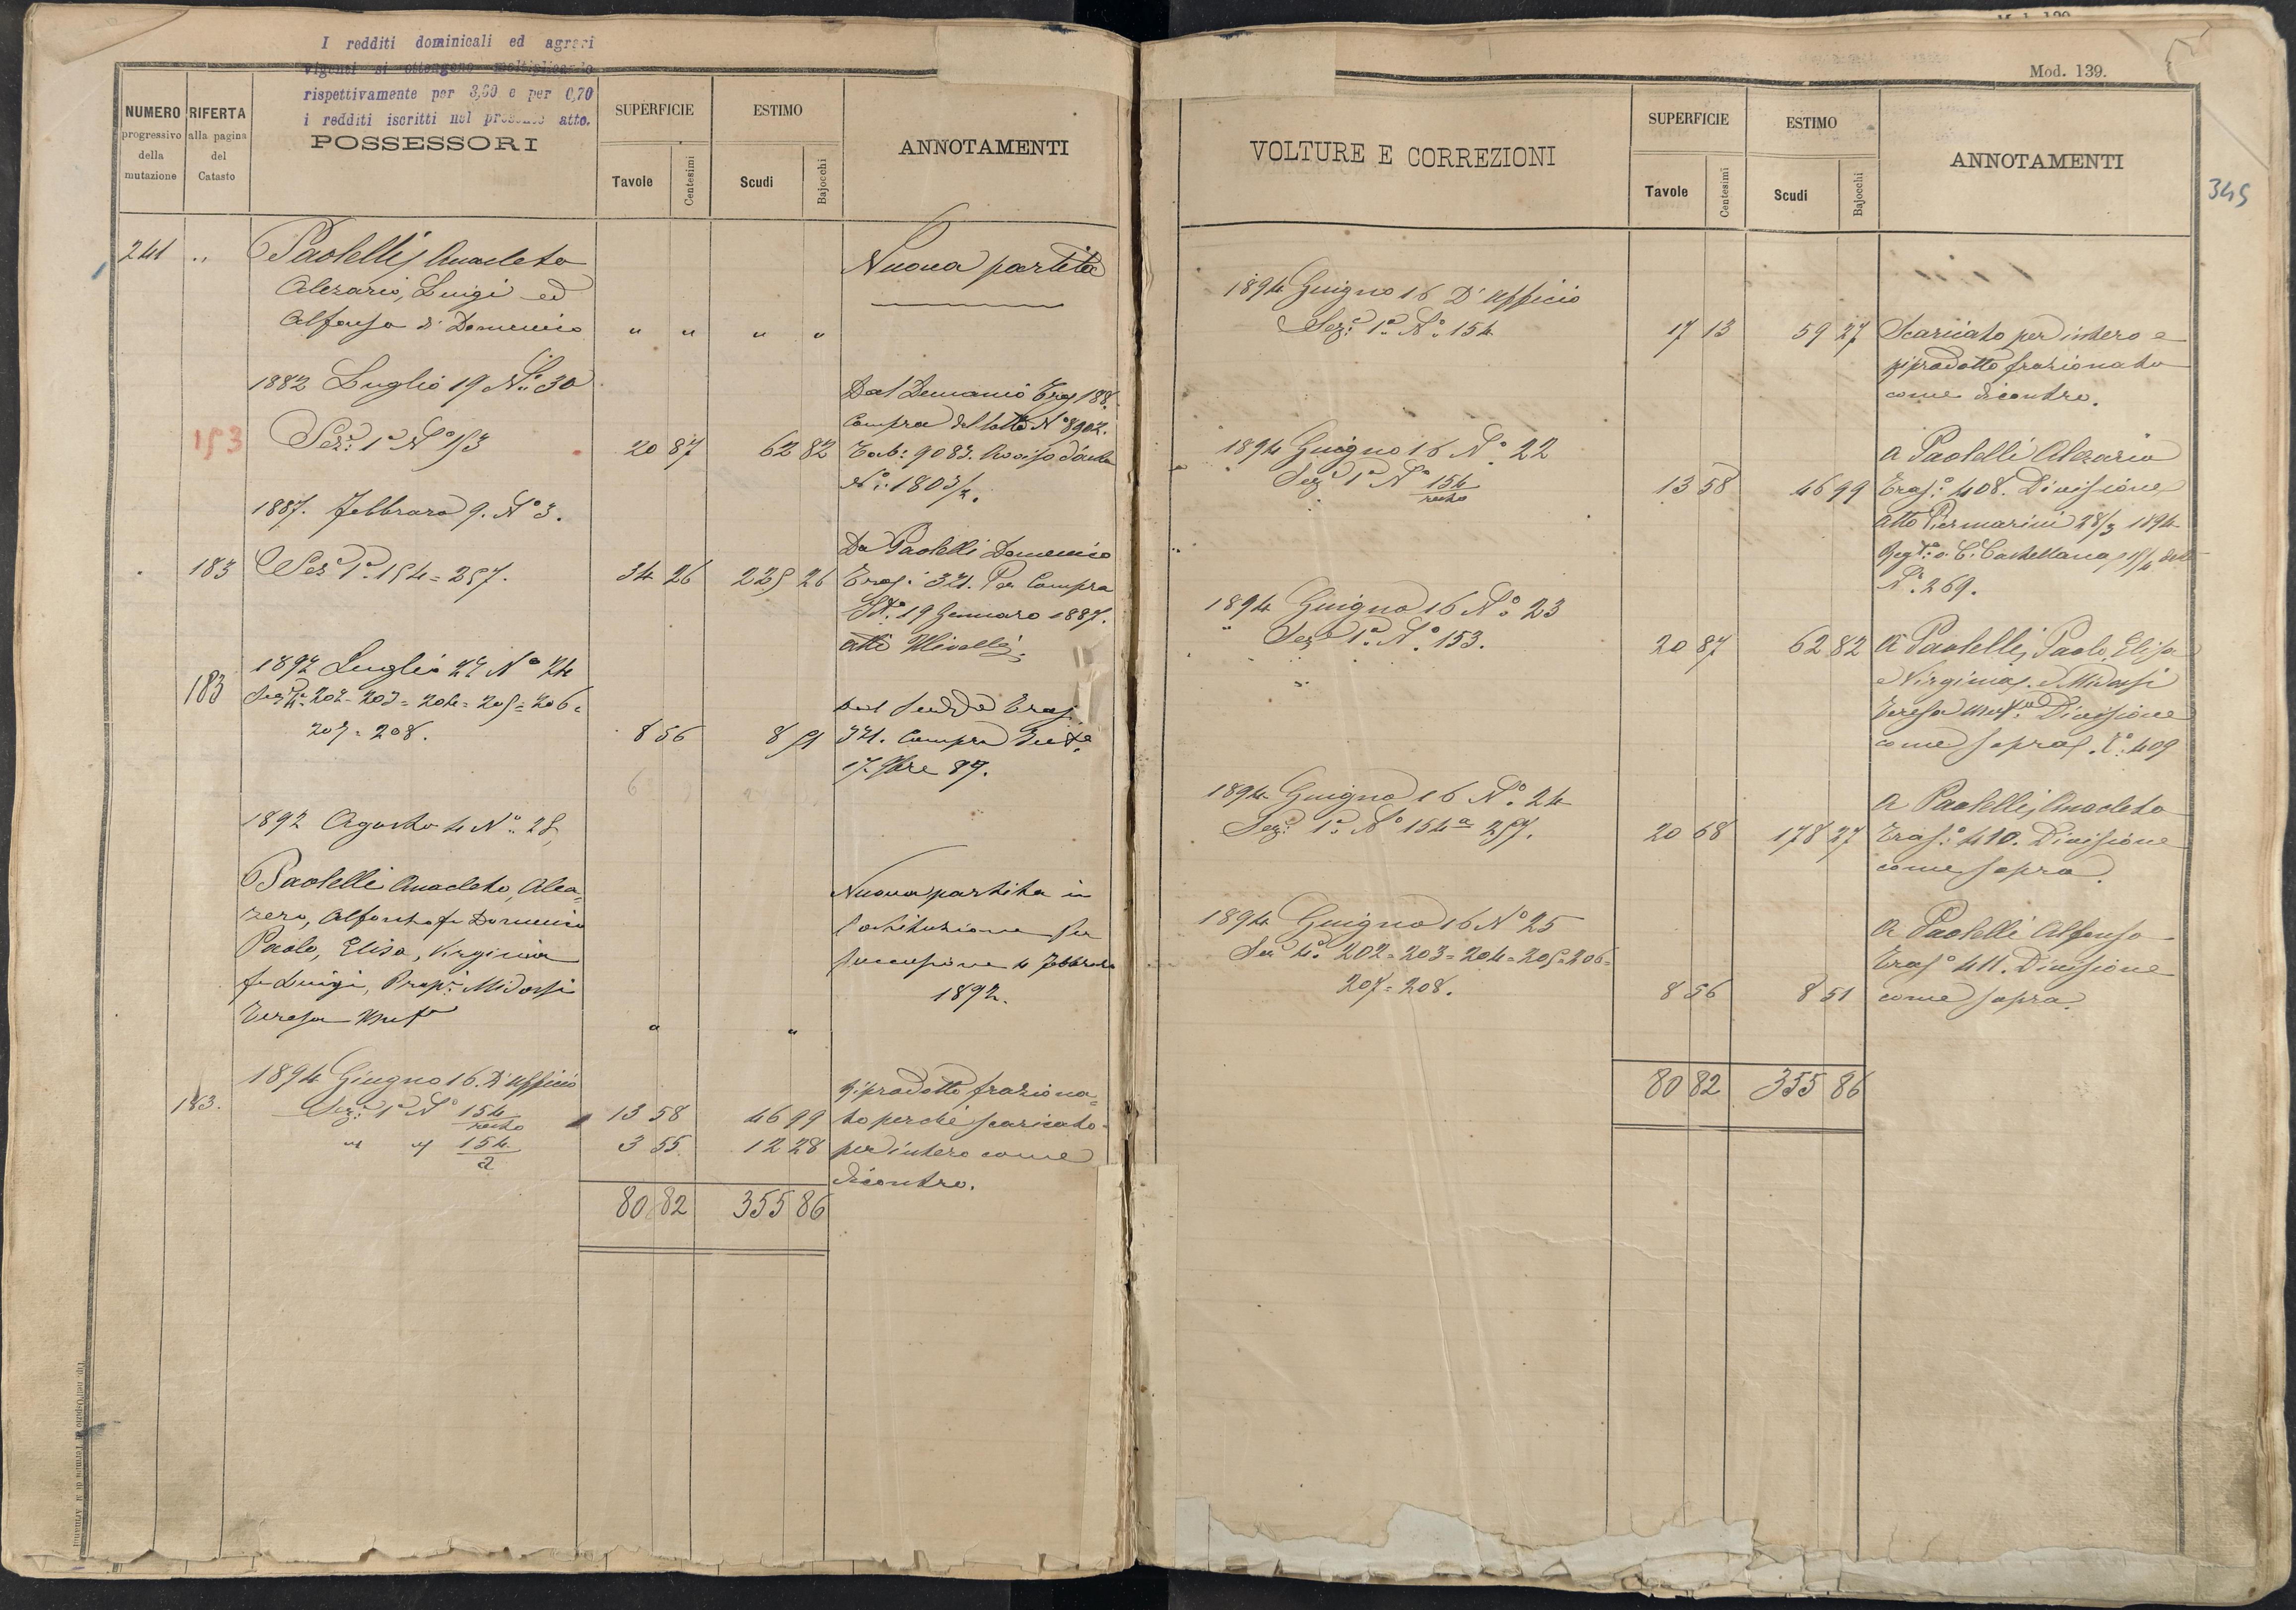 I redditi dominicali ed agrari
vigenti si ottengono moltiplicando
rispettivamente per 3,60 e per 0,70
i redditi iscritti nel presente atto.
NUMERO progressivo della mutazione
RIFERTA alla pagina del Catasto
POSSESSORI
SUPERFICIE
Tavole Centesimi
ESTIMO
Scudi Bajocchi
ANNOTAMENTI
241 „ Paolelli Anacleto
Alezario, Luigi ed
Alfonso di Domenico „ „ „ „
Nuova partita
1882 Luglio 19 N.º 30
153 Sez.e 1a Nº 153 20 87 62 82
Dal Demanio Tras 188.
Compra del lotto Nº 8902.
Tab: 9083. Avviso d'asta
Nº: 1803/2.
1887. Febbraro 9. Nº 3.
183 Sez 1a 154 = 257. 34 26 225 26
Da Paolelli Domenico
Tras: 321. Per Compra
19 Gennaro 1887.
atti
183 1892 Luglio 27 Nº 24
202 = 203 = 204 = 205 = 206 =
207 = 208. 8 56 8 51
Tras.
321. Compra
17 89.
1892 Agosto 4 Nº. 28,
Paolelli Anacleto, Alea=
zero, Alfonso fu Domenico
Paolo, Elisa, Virginia
fu Luigi, Propi Midossi
Teresa Usufa „ „
Nuova partita in
sostituzione per
successione 4 Febbraro
1892.
1894 Giugno 16. D'Ufficio
183. Sez: 1a Nº 154/resto 13 58 46 99
„ „ 154/a 3 55 12 28
Riprodotto fraziona=
to perché scaricato
per intero come
dicontro.
80 82 355 86
Mod. 139.
VOLTURE E CORREZIONI
SUPERFICIE
Tavole Centesimi
ESTIMO
Scudi Bajocchi
ANNOTAMENTI
345
1894 Giugno 16 D'Ufficio
Sez: 1a Nº. 154 17 13 59 27
Scaricato per intero e
riprodotto frazionato
come dicontro.
1894 Giugno 16 Nº. 22
Sez 1a Nº 154/resto 13 58 46 99
a Paolelli Alezario
Tras: 408. Divisione
atto Piermarini 28/3 1894
Regto a C. Castellana 11/4
Nº. 269.
1894 Giugno 16 Nº 23
Sez 1a Nº. 153. 20 87 62 82
a Paolelli Paolo, Elisa
e Virginia, e Midossi
Teresa Usufa Divisione
come sopra. 409
1894 Giugno 16 Nº. 24
Sez: 1a Nº 154a = 257. 20 68 178 27
a Paolelli Anacleto
Tras: 410. Divisione
come sopra.
1894 Giugno 16 Nº 25
Sez 4a 202 = 203 = 204 = 205 = 206 =
207 = 208. 8 56 8 51
a Paolelli Alfonso
Tras 411. Divisione
come sopra.
80 82 355 86